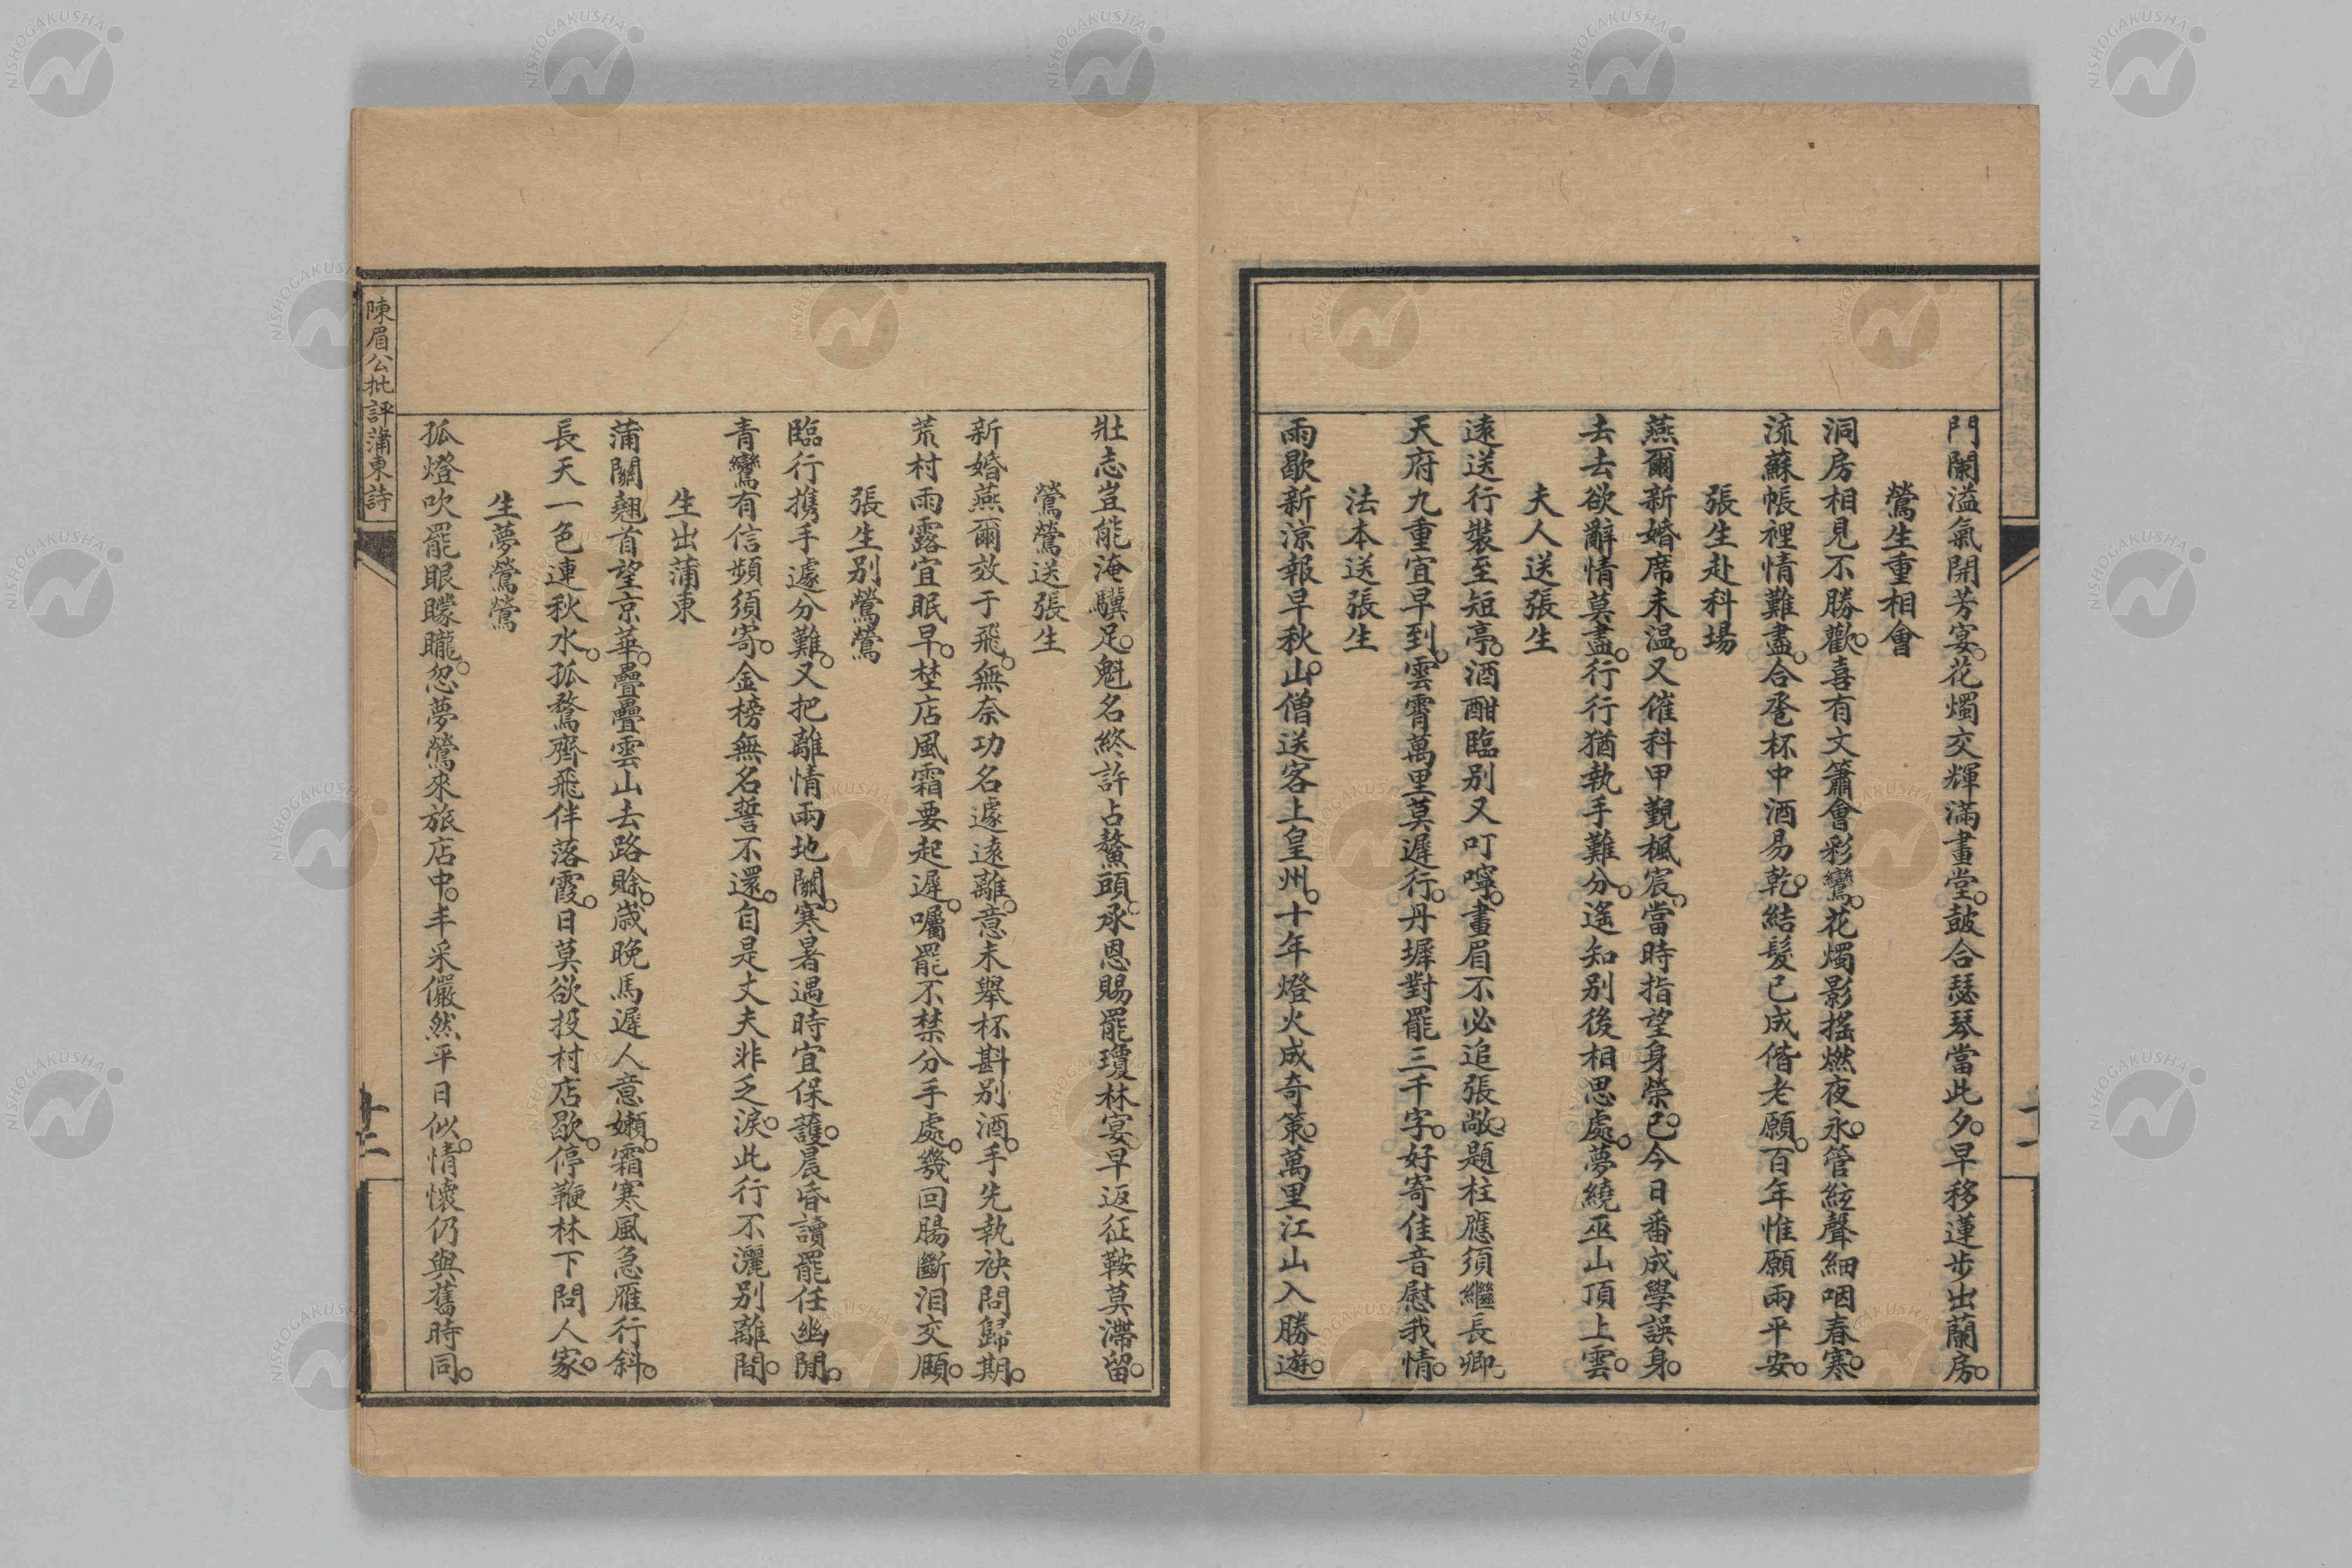 門闌溢氣開芳宴。花燭交輝滿畫堂。皷合瑟琴當此夕。早移蓮步出蘭房。
鶯生重相會
洞房相見不勝歡。喜有文簫會彩鸞。花燭影搖燃夜永。管絃聲細咽春寒。
流蘇帳裡情難盡。合卺杯中酒易乾。結髮已成偕老願。百年惟願兩平安。
張生赴科場
燕爾新婚席未温。又催科甲覲楓宸。當時指望身榮已。今日番成學誤身。
去去欲辭情莫盡。行行猶執手難分。遙知別後相思處。夢繞巫山頂上雲。
夫人送張生
遠送行裝至短亭。酒酣臨别又叮嚀。畫眉不必追張敞。題柱應須繼長卿。
天府九重宜早到。雲霄萬里莫遲行。丹墀對罷三千字。好寄佳音慰我情。
法本送張生
雨歇新涼報早秋。山僧送客上皇州。十年燈火成奇策。萬里江山入勝遊。
壯志豈能淹驥足。魁名終許占鰲頭。承恩賜罷瓊林宴。早返征鞍莫滯留。
鶯鶯送張生
新婚燕爾效于飛。無奈功名遽遠離。意未舉杯斟别酒。手先執袂問歸期。
荒村雨露宜眠早。埜店風霜要起遲。囑罷不禁分手處。幾回腸斷泪交頤。
張生别鶯鶯
臨行携手遽分難。又把離情兩地關。寒暑遇時宜保護。晨昏讀罷任幽閒。
青鸞有信頻須寄。金榜無名誓不還。自是丈夫非乏淚。此行不灑别離間。
生出蒲東
蒲關翹首望京華。疊疊雲山去路賒。歲晚馬遲人意嬾。霜寒風急雁行斜。
長天一色連秋水。孤鶩齊飛伴落霞。日莫欲投村店歇。停鞭林下問人家。
生夢鶯鶯
孤燈吹罷眼矇矓。忽夢鶯來旅店中。丰采儼然平日似。情懷仍與舊時同。
陳眉公批評蒲東詩
十二